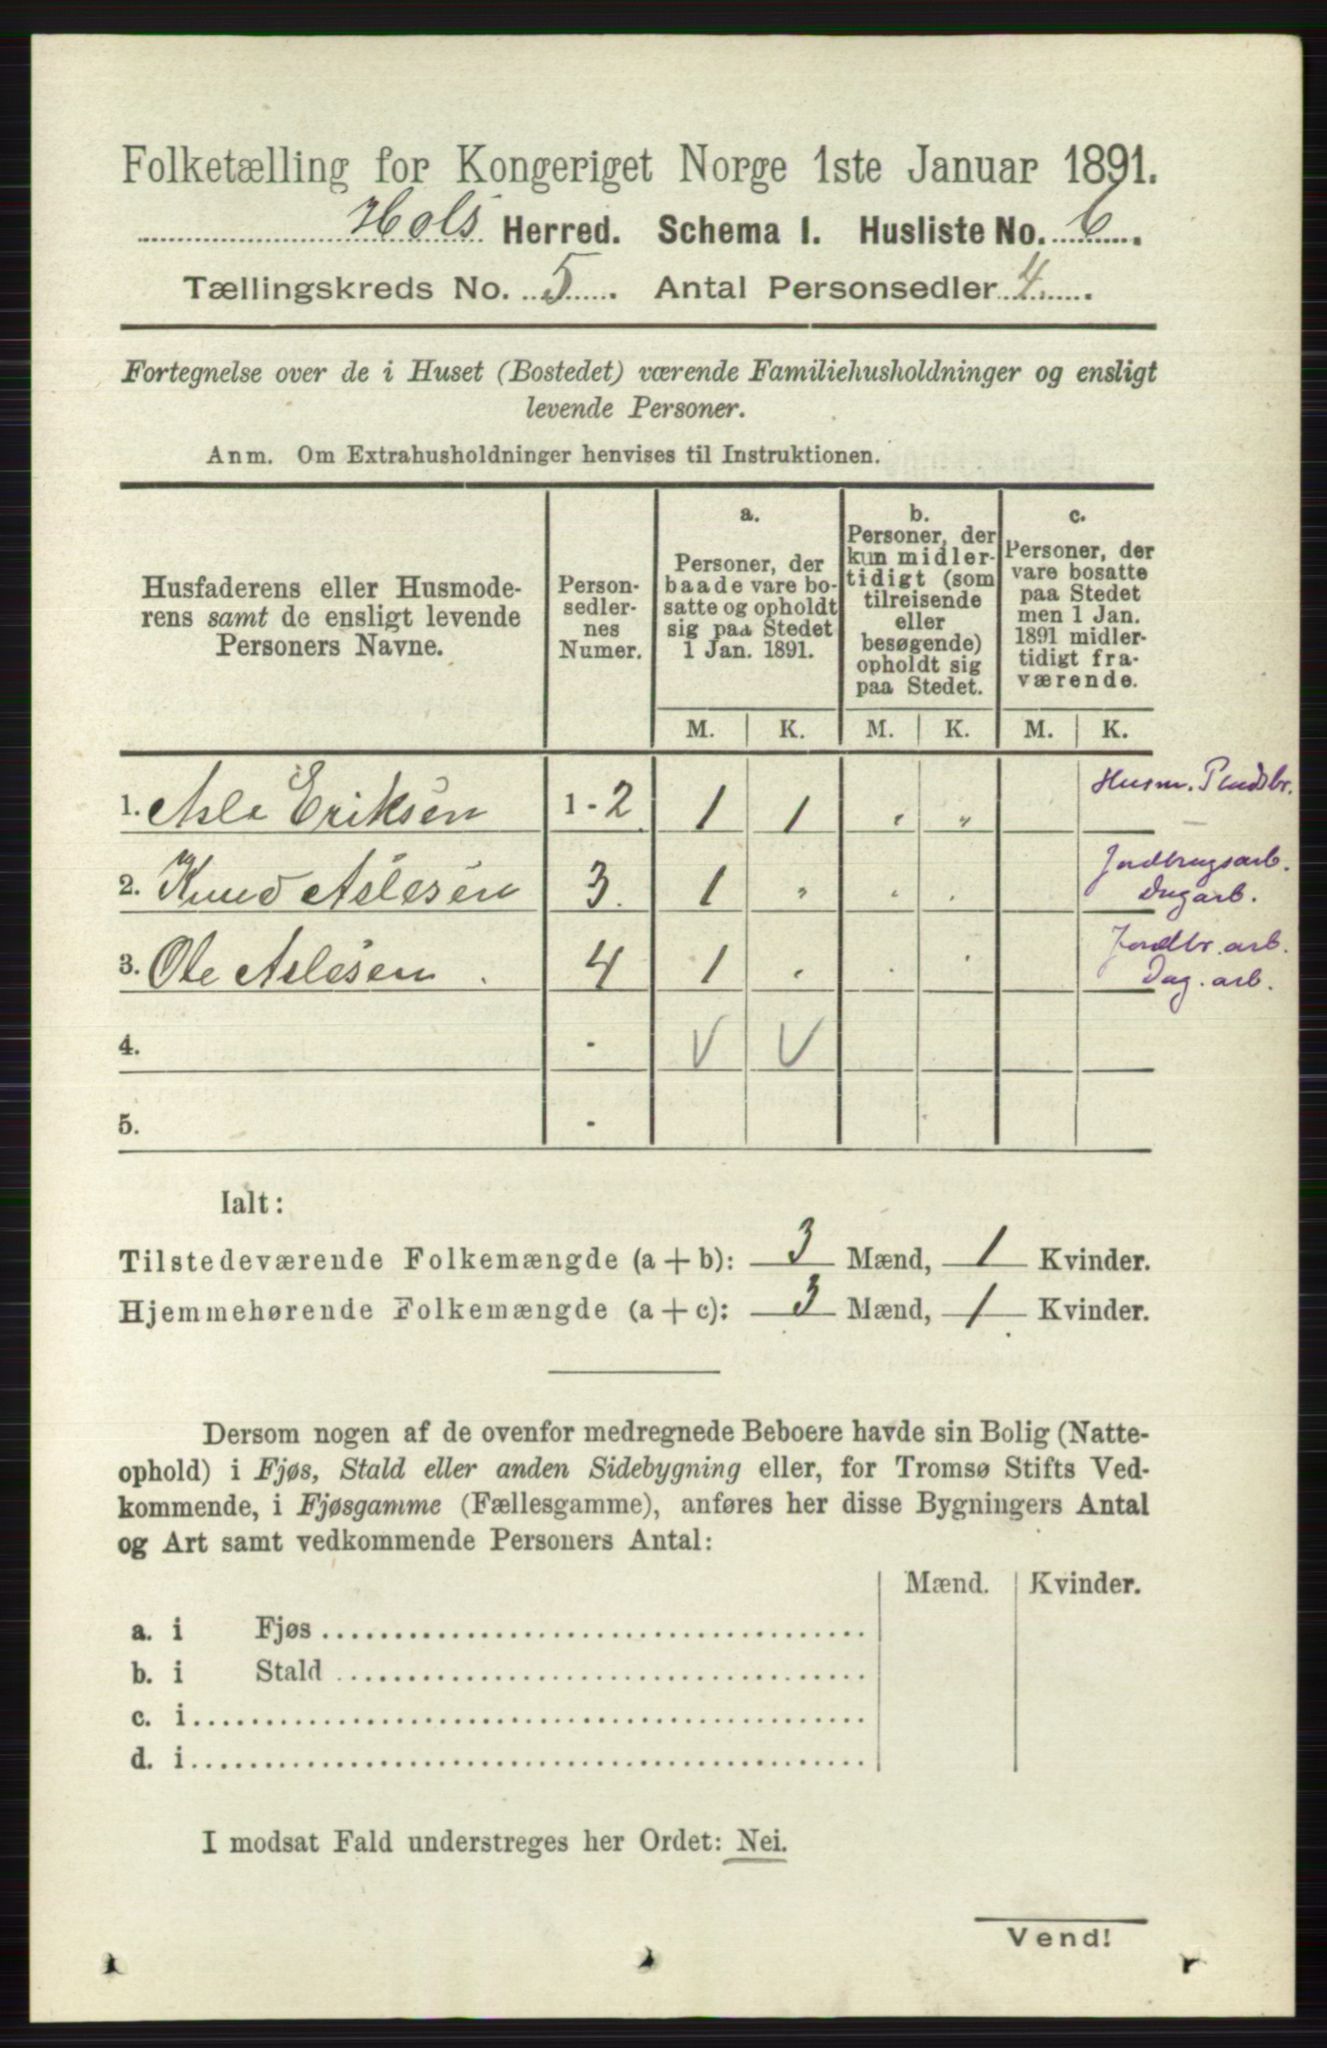 Folketælling for Kongeriget Norge 1ste Januar 1891.
Hols Herred. Schema 1. Husliste No. 6.
Tællingskreds No. 5. Antal Personsedler 4.
Fortegnelse over de i Huset (Bostedet) værende Familiehusholdninger og ensligt
levende Personer.
Anm. Om Extrahusholdninger henvises til Instruktionen.
Husfaderens eller Husmode-
rens samt de ensligt levende
Personers Navne.
Person-
sedler-
nes
Numer.
a.
Personer, der
baade vare bo-
satte og opholdt
sig paa Stedet
1 Jan. 1891.
b.
Personer, der
kun midler-
tidigt (som
tilreisende
eller
besøgende)
opholdt sig
paa Stedet.
c.
Personer, der
vare bosatte
paa Stedet
men 1 Jan.
1891 midler-
tidigt fra-
værende.
M. K. M. K. M. K.
1. Asle Eriksen 1-2 1 1 " " Husm. Pladsbr.
2. Knud Aslesen 3. 1 " " . Jordbrugsarb.
Dagarb.
3. Ole Aslesen . 4 1 . . . Jordbr. arb.
Dag. arb.
4. - V V
5. -
Ialt:
Tilstedeværende Folkemængde (a + b): 3 Mænd, 1 Kvinder.
Hjemmehørende Folkemængde (a + c): 3 Mænd, 1 Kvinder.
Dersom nogen af de ovenfor medregnede Beboere havde sin Bolig (Natte-
ophold) i Fjøs, Stald eller anden Sidebygning eller, for Tromsø Stifts Ved-
kommende, i Fjøsgamme (Fællesgamme), anføres her disse Bygningers Antal
og Art samt vedkommende Personers Antal:
Mænd. Kvinder.
a. i Fjøs
b. i Stald
c. i
d. i
I modsat Fald understreges her Ordet: Nei.
Vend!